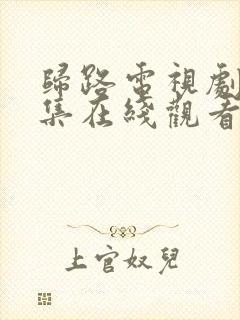 歸路電視劇
集在綫觀看
上官奴兒